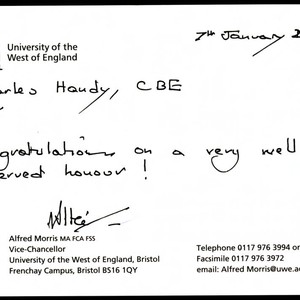 University of the
West of England
7th January 2
Charles Handy, CBE
Congratulations on a very well
deserved honour!
Alfred Morris MA FCA FSS
Vice-Chancellor
University of the West of England, Bristol
Frenchay Campus, Bristol BS16 1QY
Telephone 0117 976 3994 or
Facsimile 0117 976 3972
email: Alfred Morris@uwe.ac